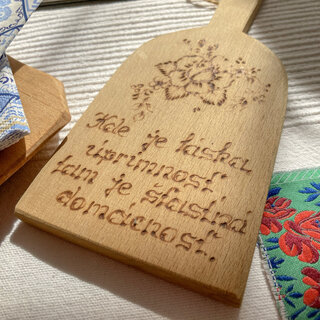 Kde je láska
úprimnosť
tam je šťastná
domácnosť.